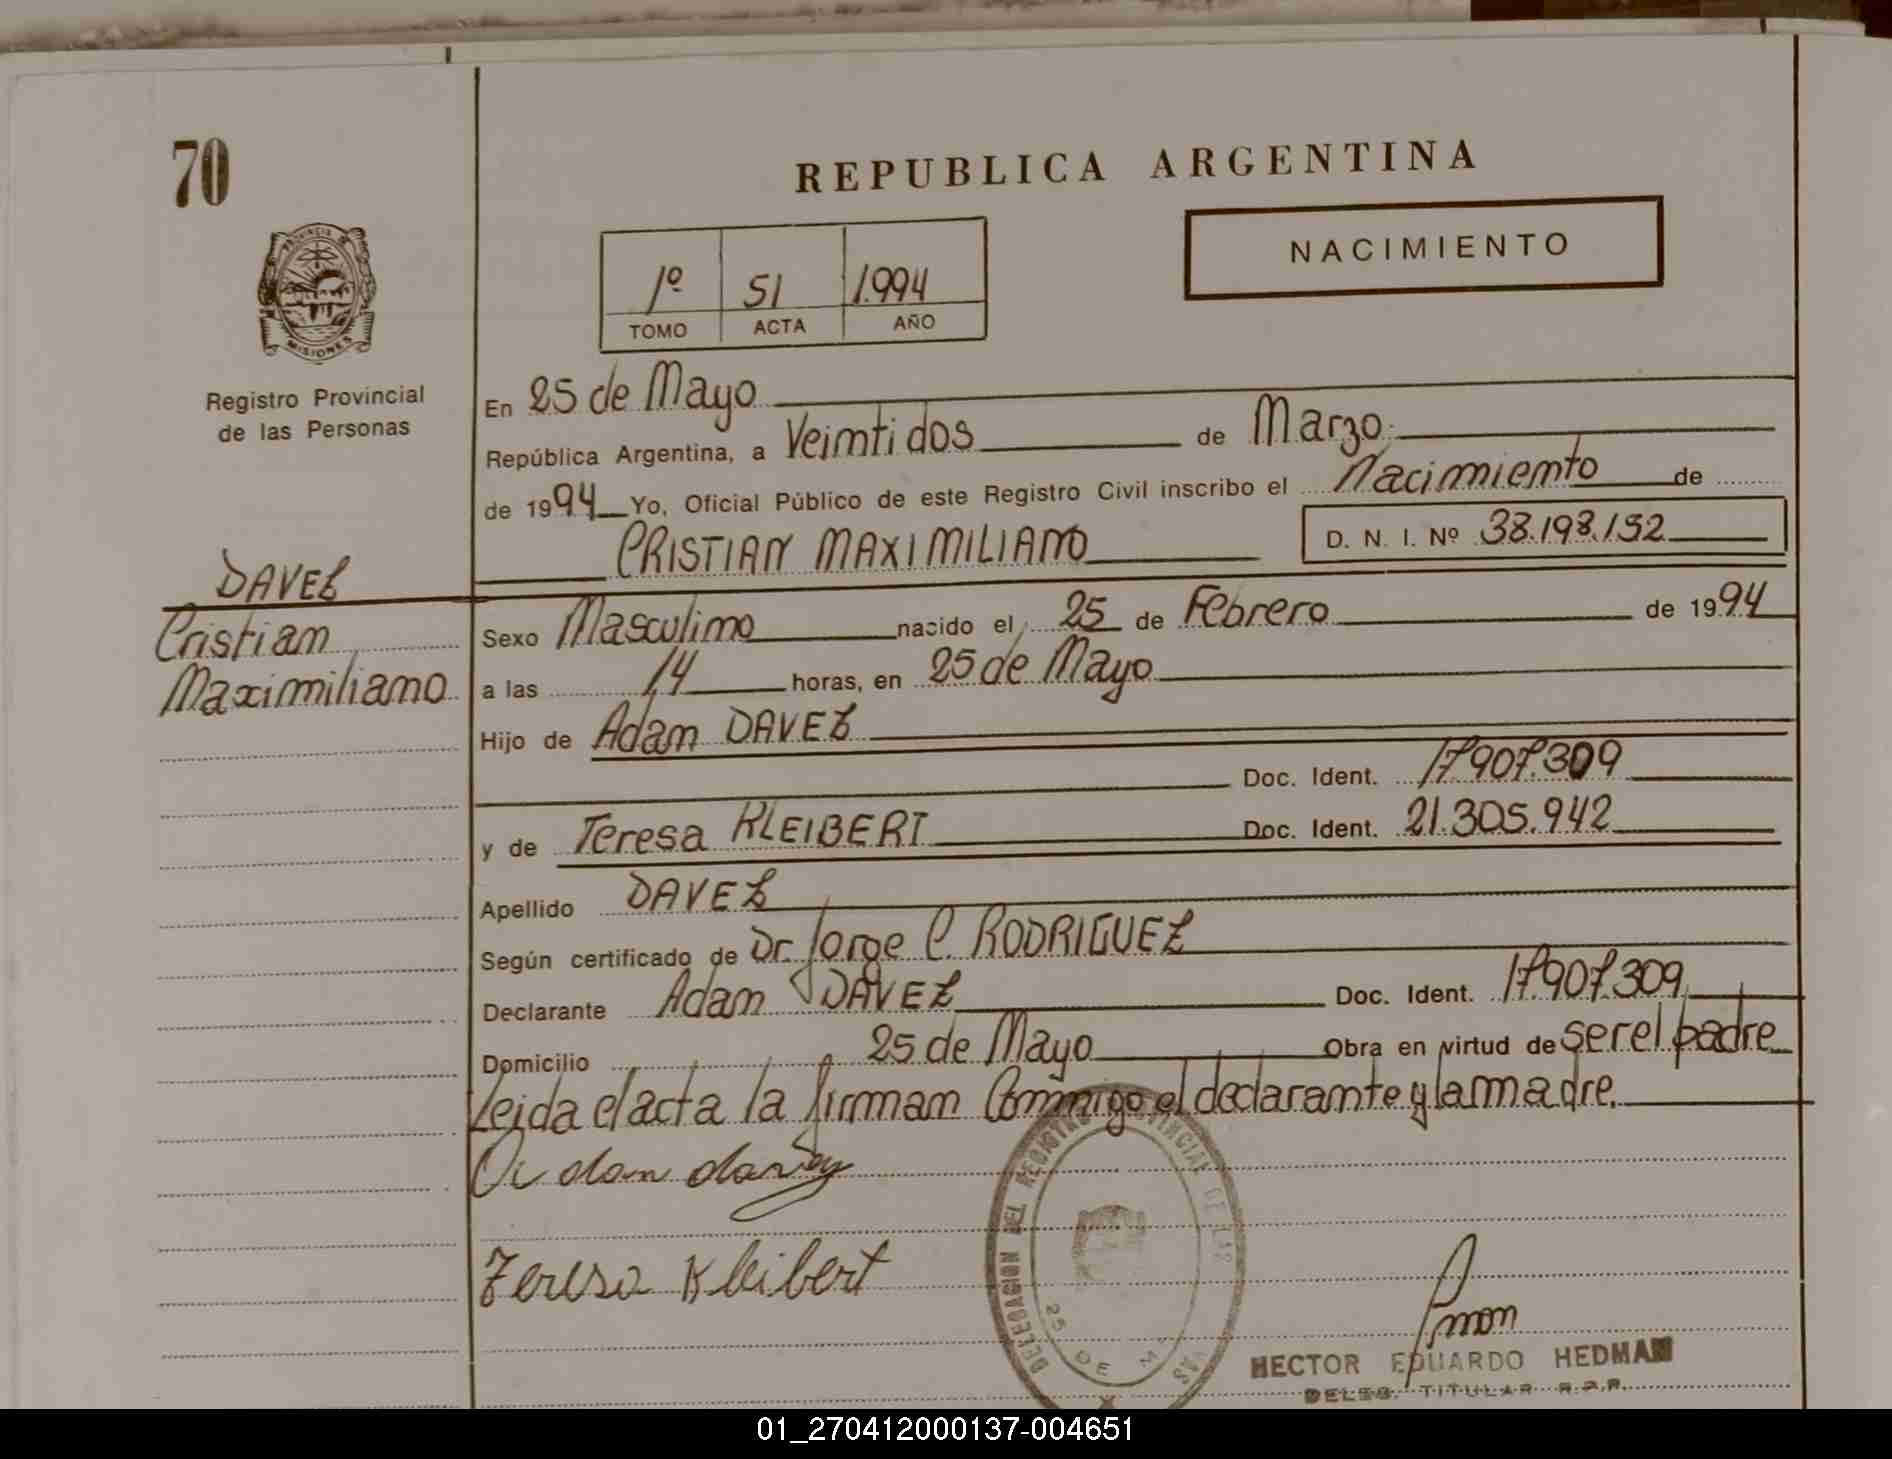 70
REPUBLICA ARGENTINA
NACIMIENTO
1º 51 1.994
TOMO ACTA AÑO
PROVINCIA DE
MISIONES
Registro Provincial
de las Personas
En 25 de Mayo
República Argentina, a Veintidos de Marzo
de 1994 Yo, Oficial Público de este Registro Civil inscribo el Nacimiento de
CRISTIAN MAXIMILIANO D. N. I. Nº 38.198.152
DAVEZ
Cristian
Maximiliano
Sexo Masculino nacido el 25 de Febrero de 1994
a las 14 horas, en 25 de Mayo
Hijo de Adam DAVEZ
Doc. Ident. 17.907.309
y de Teresa KLEIBERT Doc. Ident. 21.305.942
Apellido DAVEZ
Según certificado de Dr. Jorge C. RODRIGUEZ
Declarante Adam DAVEZ Doc. Ident. 17.907.309
Domicilio 25 de Mayo Obra en virtud de ser el padre
Leida el acta la firman Conmigo el declarante y la madre.
Teresa Kleibert
DELEGACION DEL REGISTRO PROVINCIAL DE LAS
25 DE M
HECTOR EDUARDO HEDMAN
DELEG. TITULAR R.P.P.
01_270412000137-004651